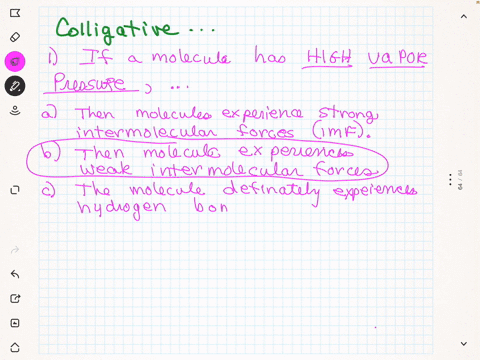 Colligative ...
1) If a molecule has HIGH VAPOR
Pressure, ...
a) Then molecules experience strong
intermolecular forces (IMF).
b) Then molecule experiences
weak intermolecular forces
c) The molecule definately experiences
hydrogen bon
64 / 64